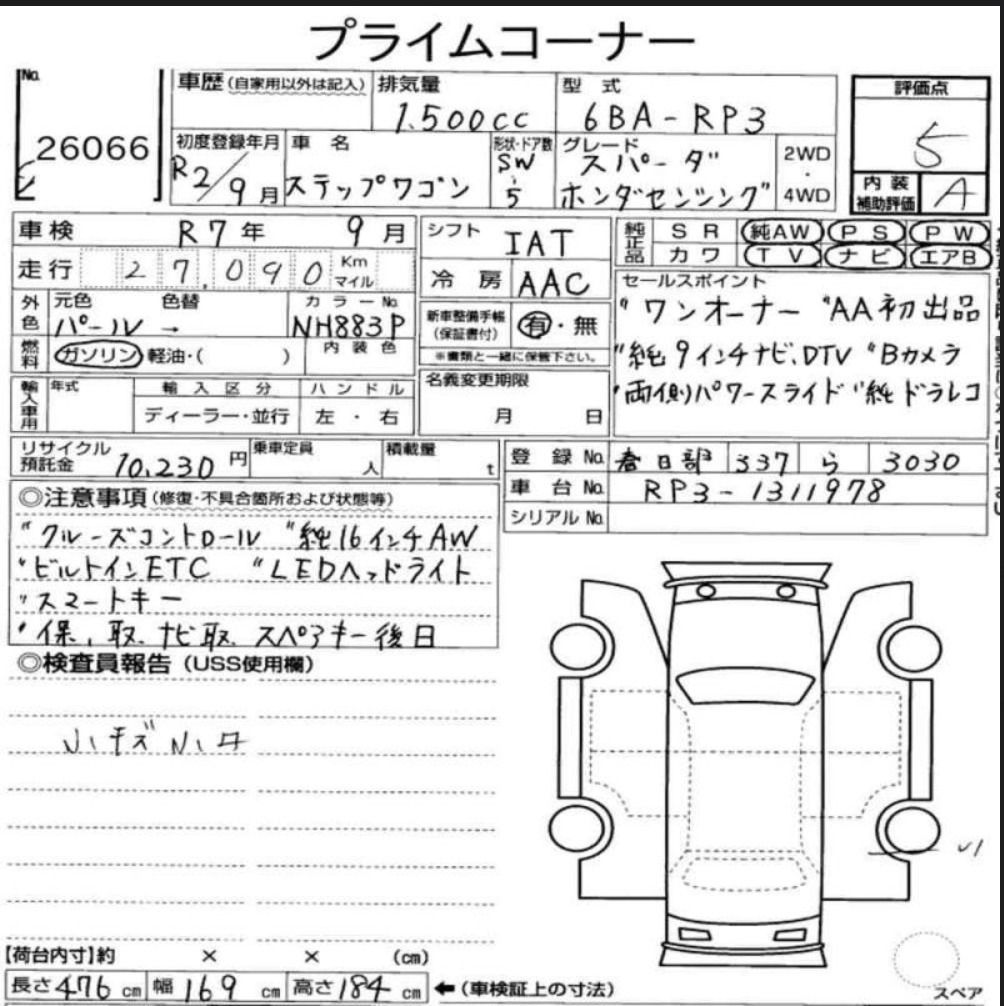 プライムコーナー
No.
26066
車歴(自家用以外は記入) 排気量 1.500cc
型式 6BA-RP3
評価点 5
内装補助評価 A
初度登録年月 R2/9月
車名 ステップワゴン
形状・ドア数 SW 5
グレード スパーダ
ホンダセンシング
2WD・4WD
車検 R7年 9月
走行 27,090 Km マイル
シフト IAT
冷房 AAC
純正品 SR 純AW PS PW
カワ TV ナビ エアB
外色 元色 パール → 色替
カラーNo. NH883P
燃料 ガソリン 軽油・( )
内装色
新車整備手帳(保証書付) 有・無
※書類と一緒に保管下さい。
セールスポイント
"ワンオーナー "AA初出品
"純9インチナビ、DTV "Bカメラ
"両側パワースライド "純ドラレコ
輸入車用 年式 輸入区分 ハンドル
ディーラー・並行 左・右
名義変更期限
月 日
リサイクル預託金 10,230円
乗車定員 人
積載量 t
登録No. 春日部 337 ら 3030
車台No. RP3-1311978
シリアルNo.
◎注意事項(修復・不具合箇所および状態等)
"クルーズコントロール "純16インチAW
"ビルトインETC "LEDヘッドライト
"スマートキー
"保、取、ナビ取、スペアキー後日
◎検査員報告(USS使用欄)
小キズ小凹
【荷台内寸】約 × × (cm)
長さ476cm 幅169cm 高さ184cm ←(車検証上の寸法)
スペア